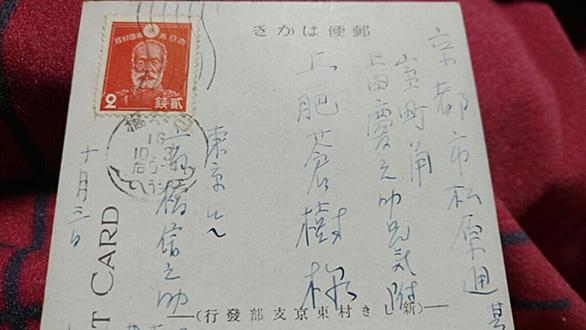 郵便はかき
大日本帝國郵便
2 貳錢
京都市松原通
室町角
上田慶之助兄気附
土肥蒼樹様
東京にて
橋信之助
十月三日
16
T CARD
(新しき村東京支部發行)